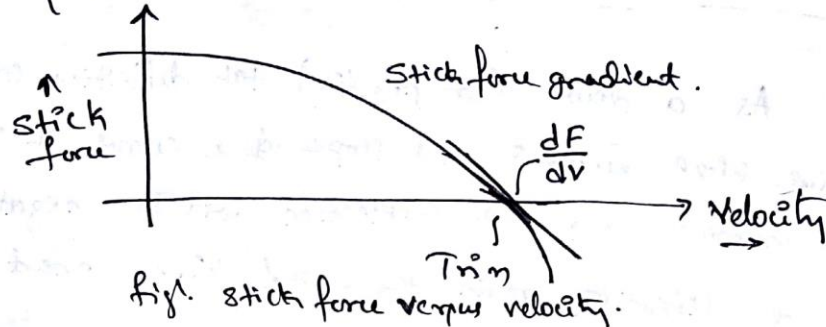 Stick force gradient.
↑
Stick
force
dF
dV
Velocity
→
Trim
fig1. stick force versus velocity.